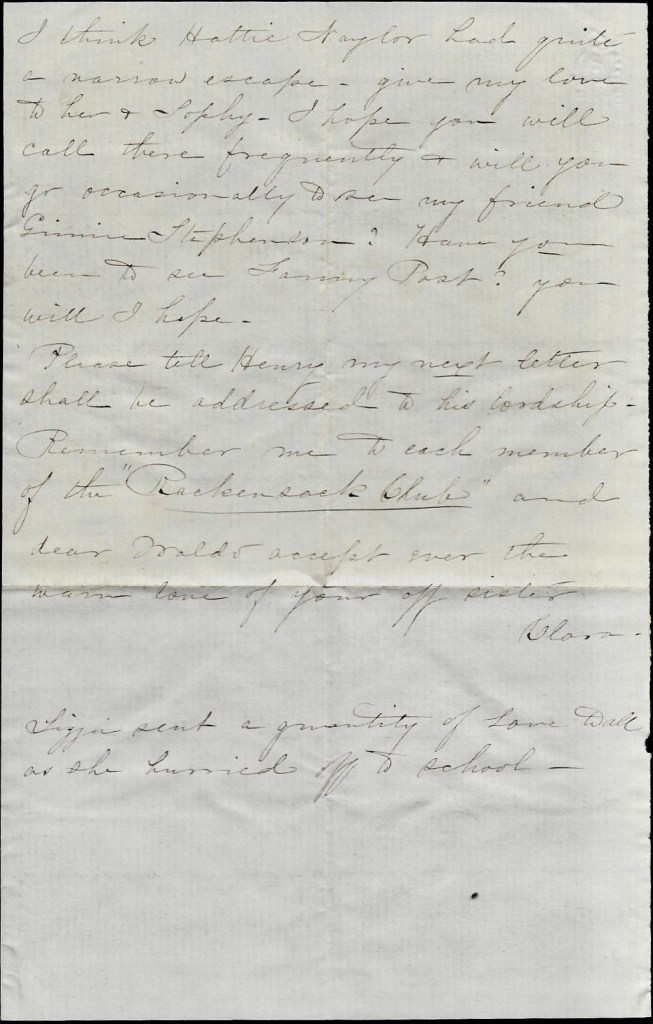 I think Hattie Naylor had quite
a narrow escape - give my love
to her & Sophy - I hope you will
call there frequently & will you
go occasionally to see my friend
Ginnie Stephenson? Have you
been to see Fanny Post? you
will I hope -
Please tell Henry my next letter
shall be addressed to his lordship -
Remember me to each member
of the "Rackensack Club" and
dear Waldo accept ever the
warm love of your aff sister
Clara -
sent a quantity of Love to all
as she hurried off to school -